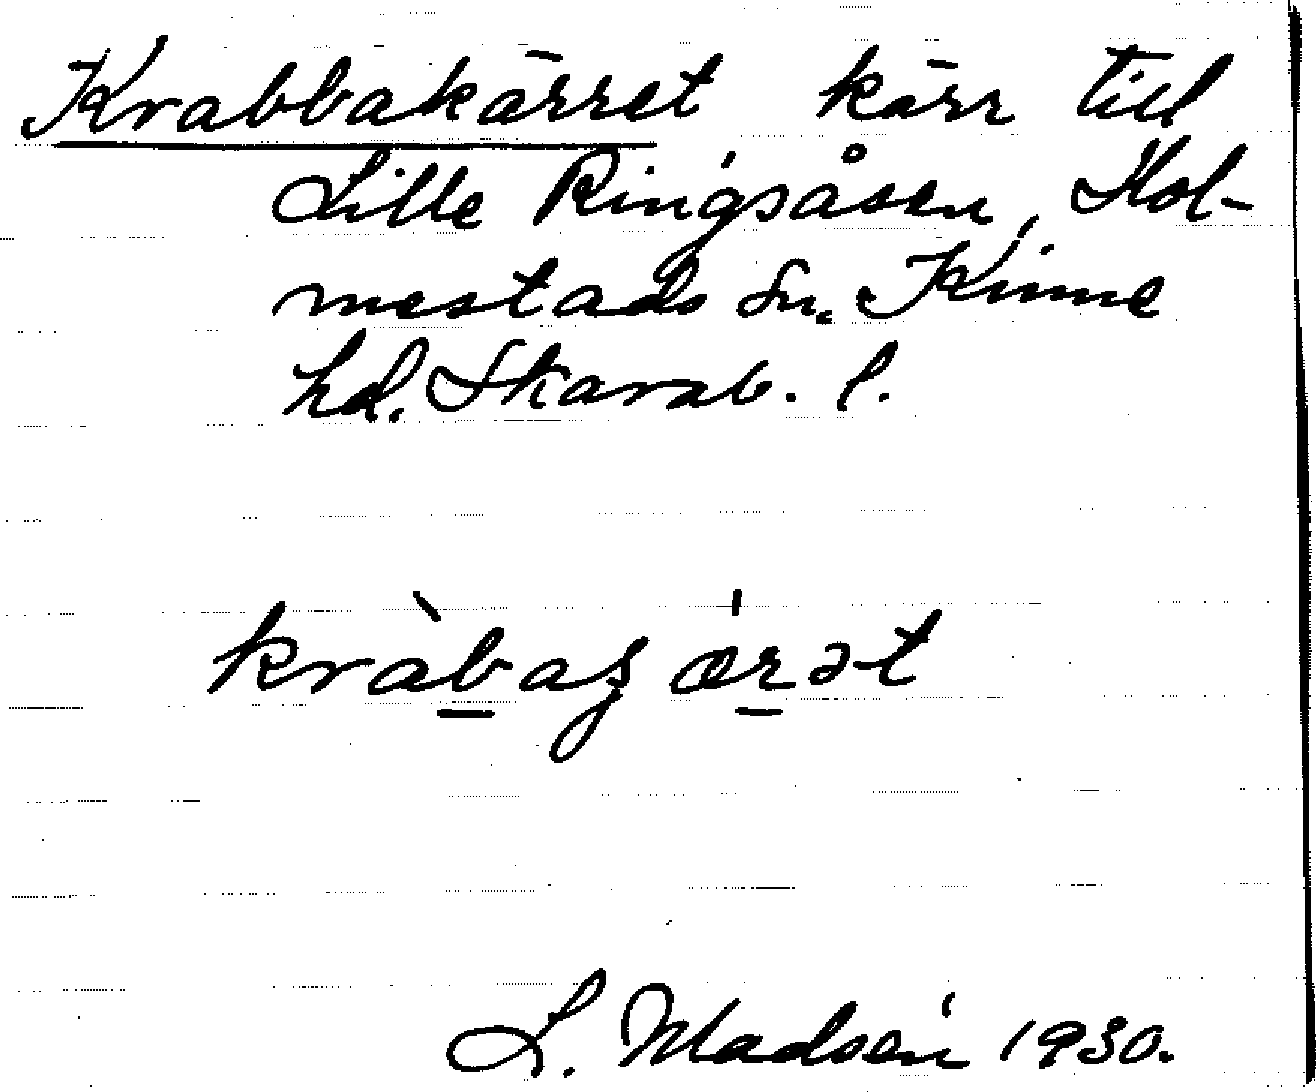 Krabbakärret kärr till
Lille Ringsåsen, Hol-
mestads sn. Kinne
hd. Skarab. l.
kràbaʂ œ́rət
L. Madsén 1930.